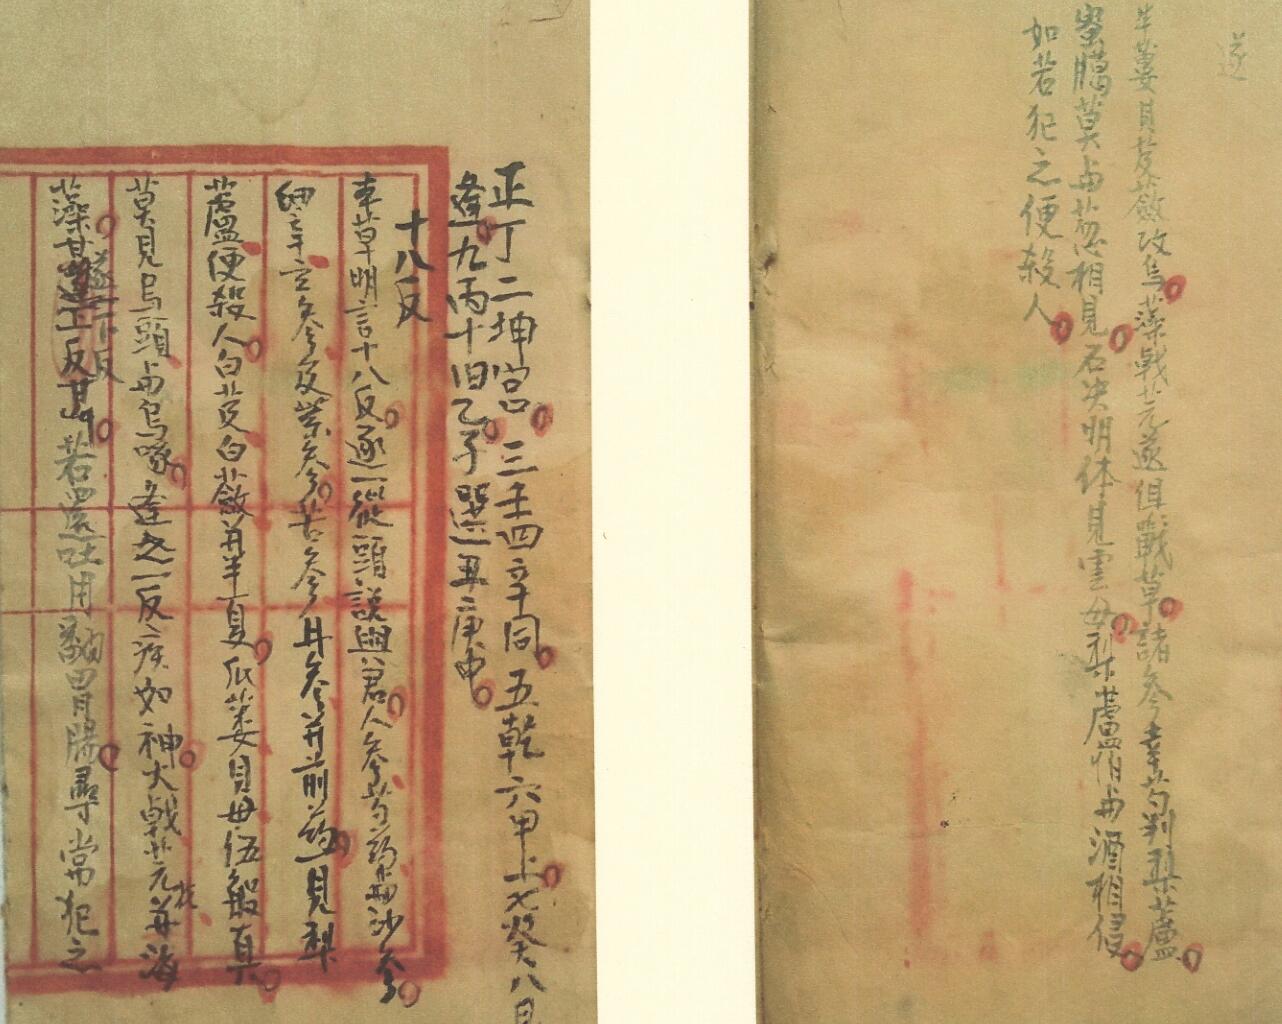 遂
半蔞貝芨蘞攻烏藻戟芫遂俱戰草諸參辛芍判梨蘆
蜜臈莫与葱相見石决明休見雲母梨蘆怕与酒相侵
如若犯之便殺人
正丁二坤宮三壬四辛同五乾六甲上七癸八艮
逢九丙十旧乙子選五庚中
十八反
本草明言十八反逐一從頭說與君人參芍藥與沙參
細辛玄參及紫參苦參丹參并前藥一見梨
蘆便殺人白芨白蘞并半夏瓜蔞貝母伍般真
莫見烏頭与烏啄逢之一反疾如神大戟芫花并海
遂一下反
藻甘反甘草若還吐用翻胃腸尋常犯之